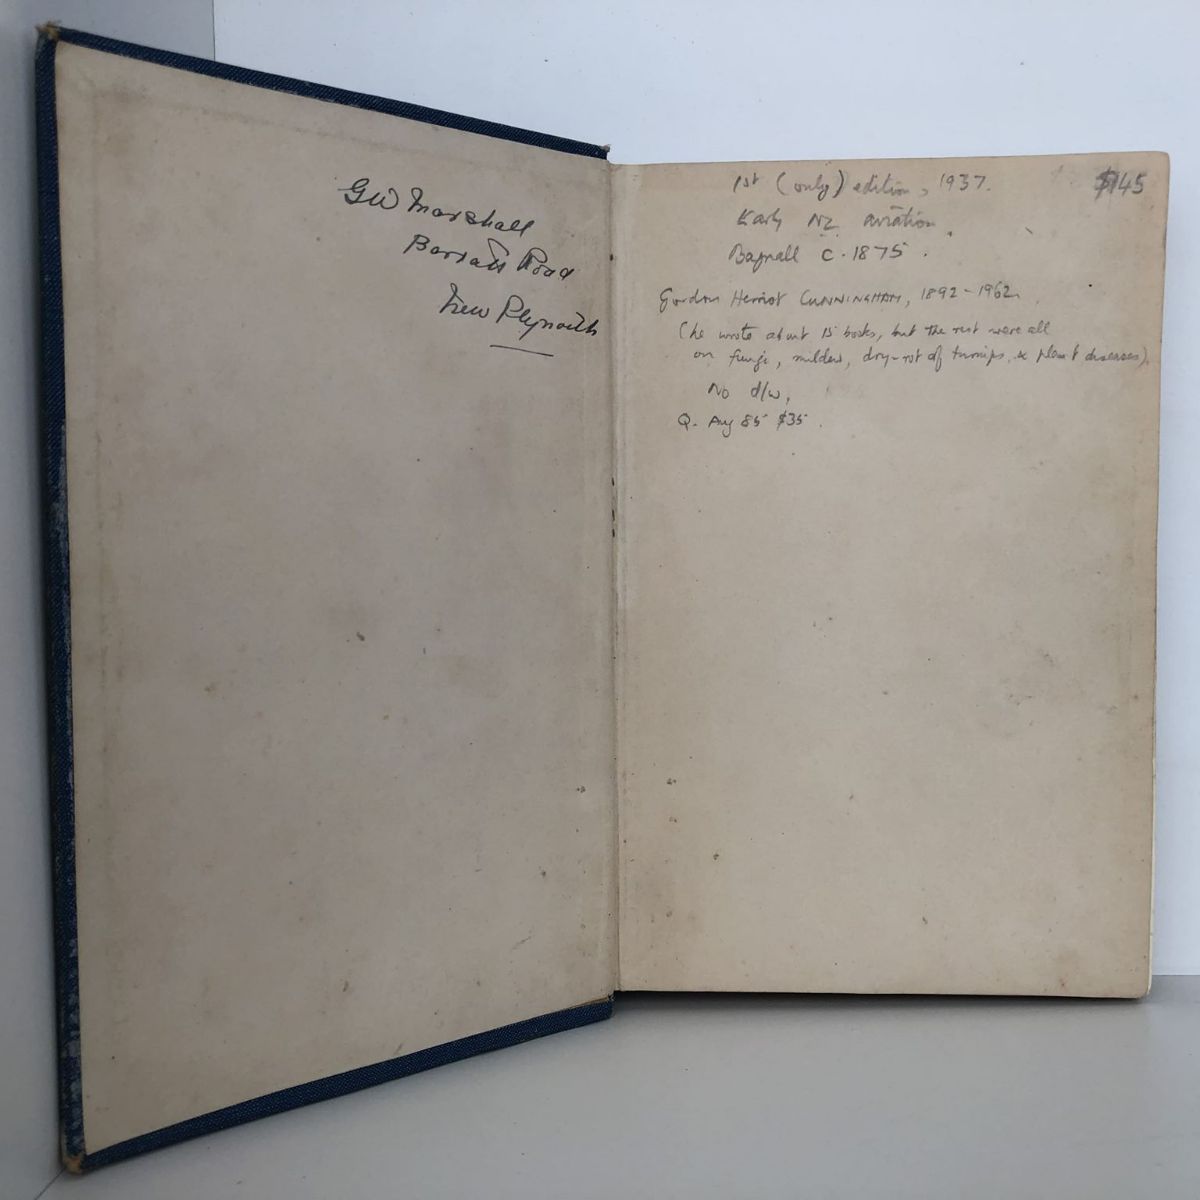 GW Marshall
Barrett Road
New Plymouth
1st (only) edition, 1937.
$145
Early NZ aviation.
Bagnall C.1875.
Gordon Herriot CUNNINGHAM, 1892-1962.
(he wrote about 15 books, but the rest were all
on fungi, mildew, dry-rot of turnips, & plant diseases).
No d/w,
Q. Aug 85 $35.